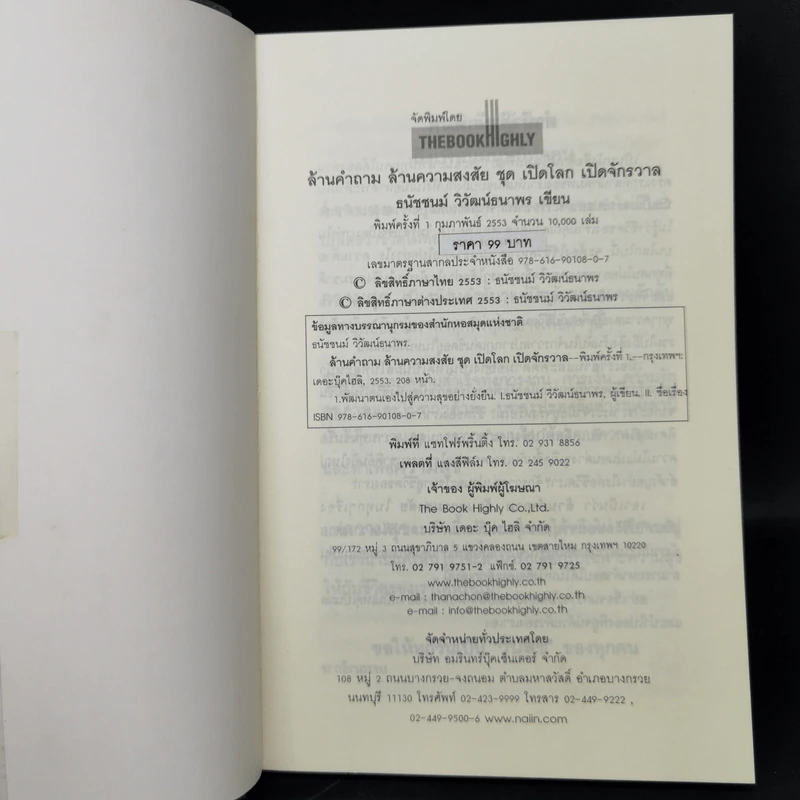 จัดพิมพ์โดย
THEBOOKHIGHLY
ล้านคำถาม ล้านความสงสัย ชุด เปิดโลก เปิดจักรวาล
ธนัชชนม์ วิวัฒน์ธนาพร เขียน
พิมพ์ครั้งที่ 1 กุมภาพันธ์ 2553 จำนวน 10,000 เล่ม
ราคา 99 บาท
เลขมาตรฐานสากลประจำหนังสือ 978-616-90108-0-7
© ลิขสิทธิ์ภาษาไทย 2553 : ธนัชชนม์ วิวัฒน์ธนาพร
© ลิขสิทธิ์ภาษาต่างประเทศ 2553 : ธนัชชนม์ วิวัฒน์ธนาพร
ข้อมูลทางบรรณานุกรมของสำนักหอสมุดแห่งชาติ
ธนัชชนม์ วิวัฒน์ธนาพร.
ล้านคำถาม ล้านความสงสัย ชุด เปิดโลก เปิดจักรวาล--พิมพ์ครั้งที่ 1.--กรุงเทพฯ:
เดอะบุ๊คไฮลิ, 2553. 208 หน้า.
1.พัฒนาตนเองไปสู่ความสุขอย่างยั่งยืน I.ธนัชชนม์ วิวัฒน์ธนาพร, ผู้เขียน. II. ชื่อเรื่อง
ISBN 978-616-90108-0-7
พิมพ์ที่ แซทโฟร์พริ้นติ้ง โทร. 02 931 8856
เพลตที่ แสงสีฟิล์ม โทร. 02 245 9022
เจ้าของ ผู้พิมพ์ผู้โฆษณา
The Book Highly Co.,Ltd.
บริษัท เดอะ บุ๊ค ไฮลิ จำกัด
99/172 หมู่ 3 ถนนสุขาภิบาล 5 แขวงคลองถนน เขตสายไหม กรุงเทพฯ 10220
โทร. 02 791 9751-2 แฟ็กซ์. 02 791 9725
www.thebookhighly.co.th
e-mail : thanachon@thebookhighly.co.th
e-mail : info@thebookhighly.co.th
จัดจำหน่ายทั่วประเทศโดย
บริษัท อมรินทร์บุ๊คเซ็นเตอร์ จำกัด
108 หมู่ 2 ถนนบางกรวย-จงถนอม ตำบลมหาสวัสดิ์ อำเภอบางกรวย
นนทบุรี 11130 โทรศัพท์ 02-423-9999 โทรสาร 02-449-9222,
02-449-9500-6 www.naiin.com